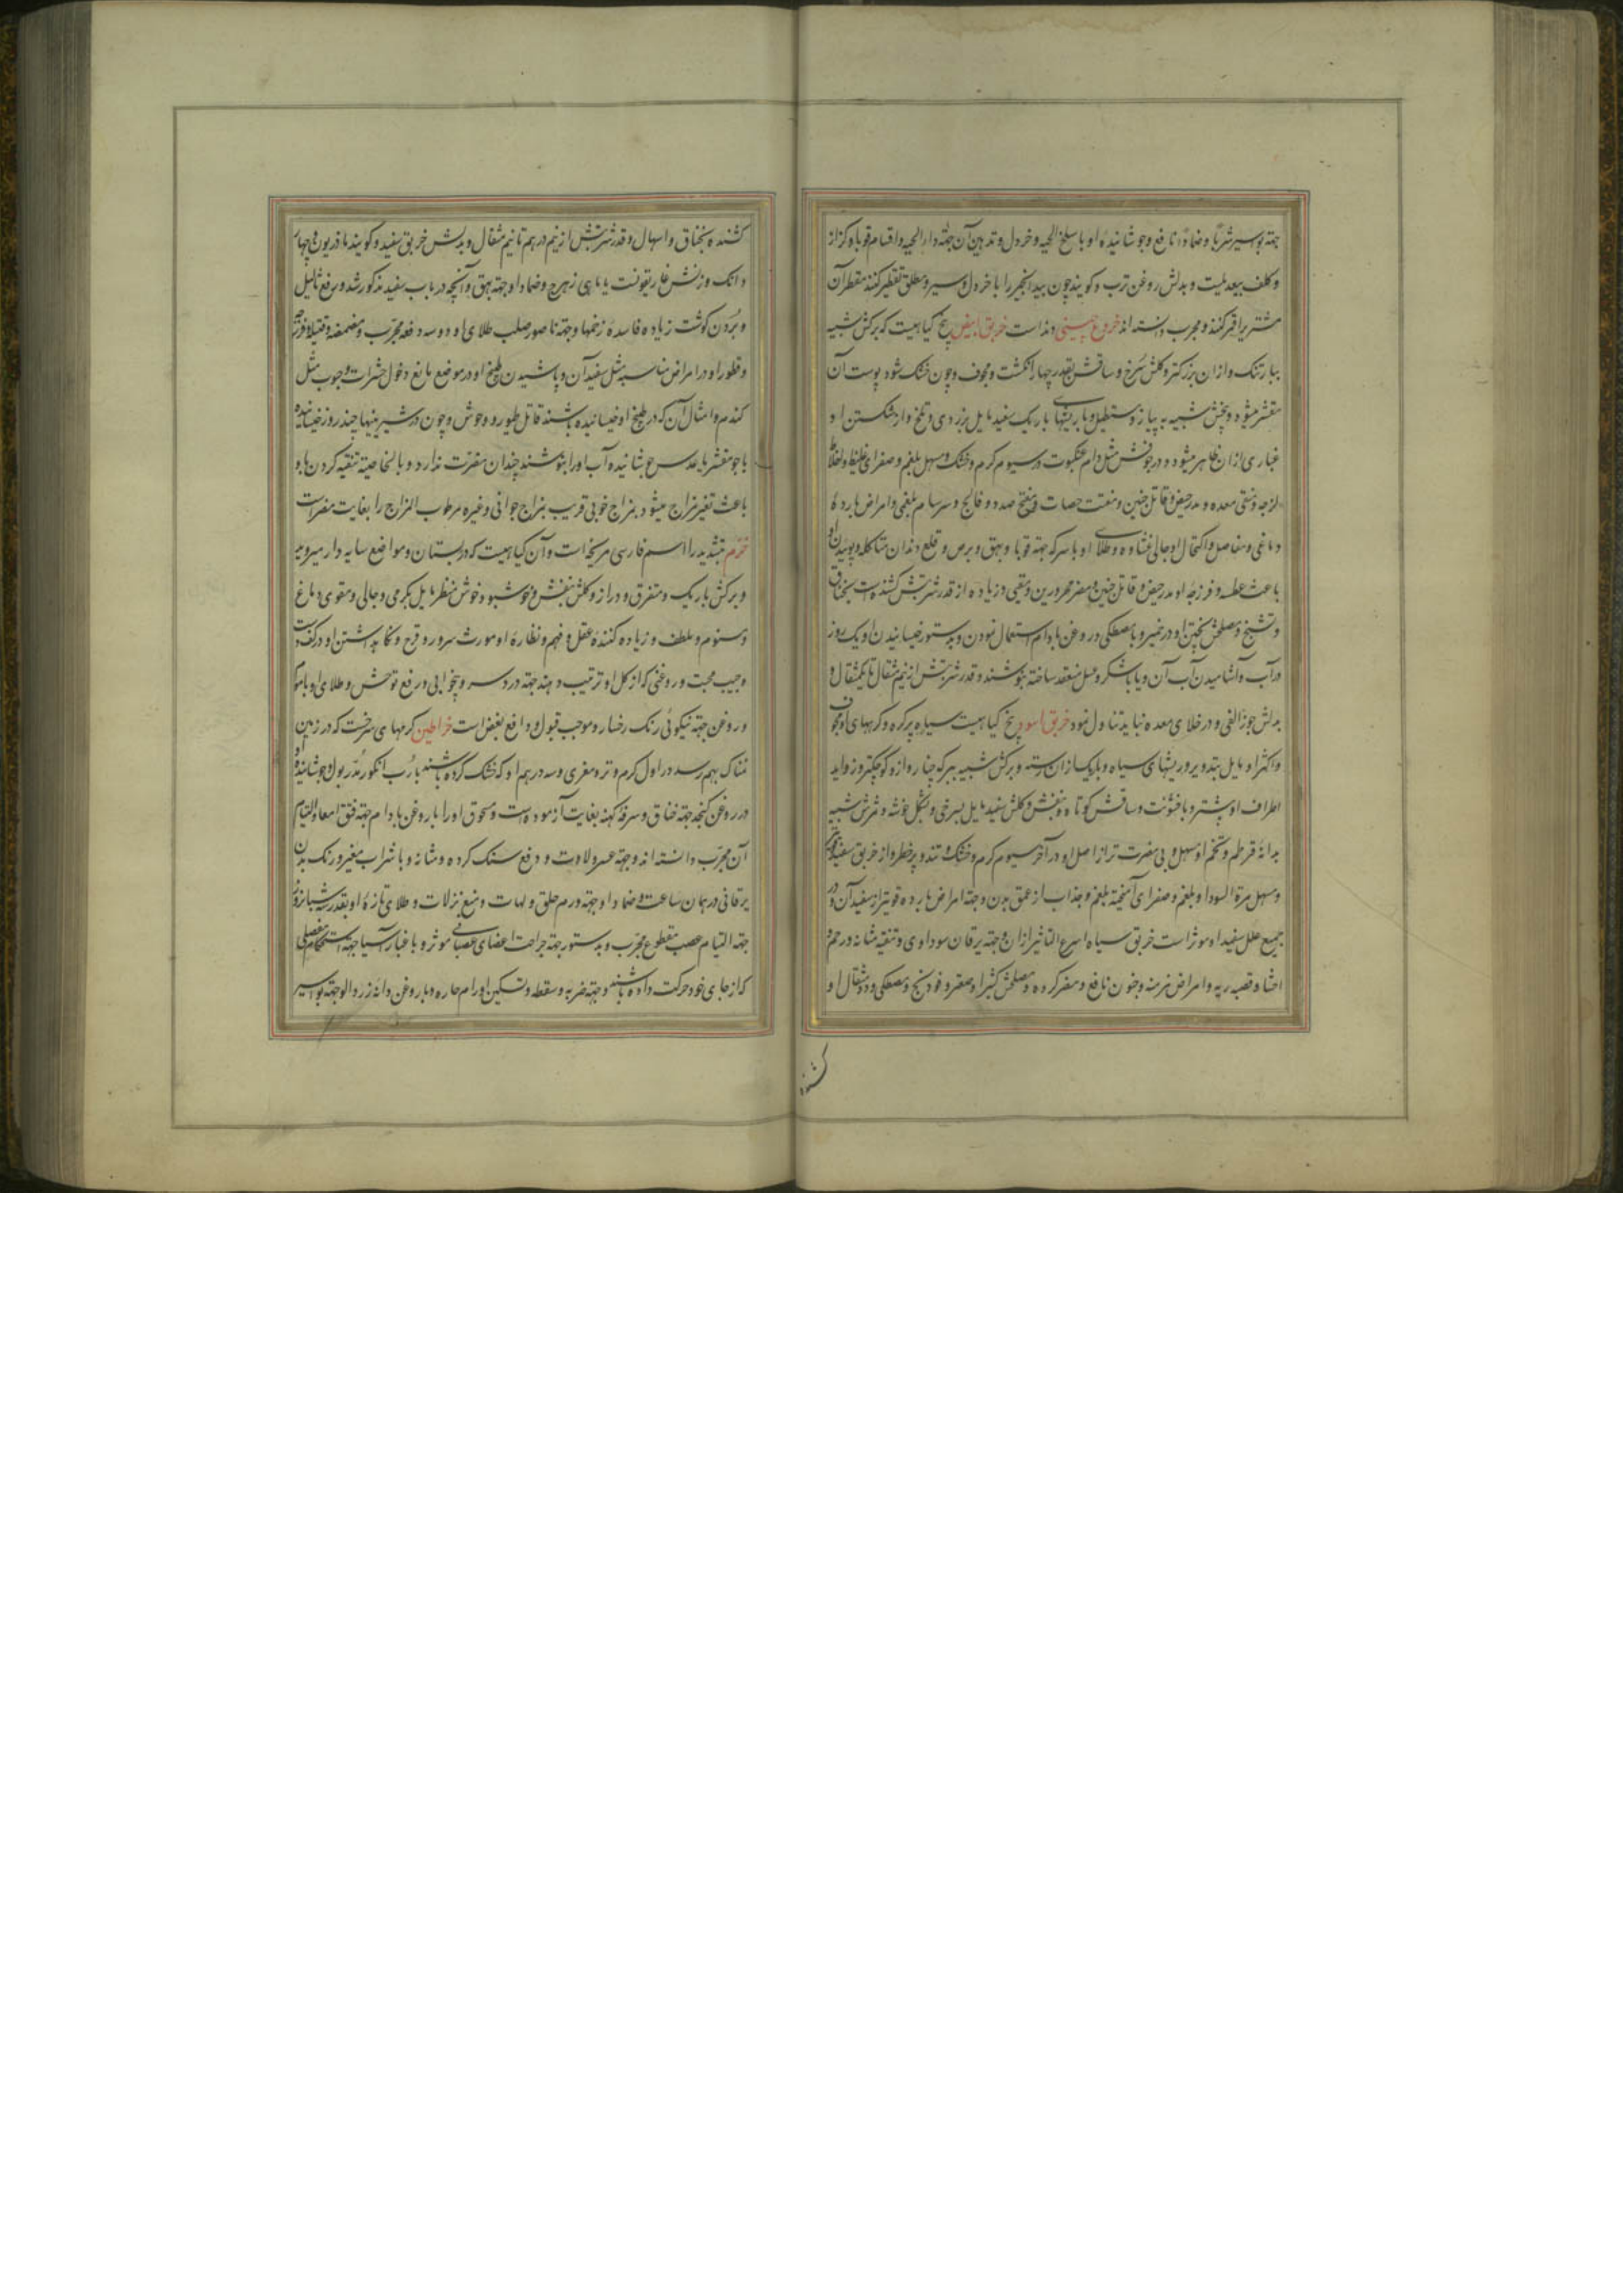 جهته بواسیر شربا و ضمادا نافع و جوشانیده او با سلخ الحیه و خردل و تدهین آن جهته داء الحیه و اقسام قوبا و کزاز
و کلف بیعدیلست و بدلش روغن ترب و کویند چون بیدانجیر را با خردل و سیر و معلق تقطیر کنند مقطر آن
مشتری را قمر کند و مجرب دانسته اند خروع چینی دند است خربق ابیض بیخ کیاهیست که برکش شبیه
ببارتنک و ازان بزرکتر و کلش سرخ و ساقش بقدر چهار انکشت و مجوف و چون خشک شود پوست آن
مقشر میشود و بیخش شبیه به پیاز و مستطیل و با ریشهای باریک سفید مایل بزردی و تلخ و از شکستن او
غباری ازان ظاهر میشود و در جوفش مثل دام عنکبوت در سیوم کرم و خشک و مسهل بلغم و صفرای غلیظ و اخلاط
لزجه و منقی معده و مدر حیض و قاتل جنین و مفتت حصات و مفتح سدد و فالج و سرسام بلغمی و امراض بارده
دماغی و مفاصل و اکتحال او جالی غشاوه و طلای او با سرکه جهته قوبا و بهق و برص و قلع دندان متاکله و بوئیدن او
باعث عطسه و فرزجه او مدر حیض و قاتل جنین و مضر محرورین و مقیی و زیاده از قدر شربتش کشنده است بخناق
و تشنج و مصلحش پختن او در خمیر و با مصطکی در روغن بادام استعمال نمودن و بدستور خیسانیدن او یک روز
در آب و آشامیدن آب آن و یا با شکر و عسل منعقد ساخته بنوشند و قدر شربتش از نیم مثقال تا یکمثقال و
بدلش جوز القی و در خلای معده نباید تناول نمود خربق اسود بیخ کیاهیست سیاه پر کره و کرههای او مجوف
و اکثر او مایل بتدویر و ریشهای سیاه و باریک ازان رسته و برکش شبیه ببرک چنار و ازو کوچکتر و زواید
اطراف او بیشتر و با خشونت و ساقش کوتاه و بنفش و کلش سفید مایل بسرخی و بشکل خوشه و ثمرش شبیه
بدانه قرطم و تخم او مسهل و بی مضرت تر از اصل او در آخر سیوم کرم و خشک و تند و پرخطر و از خربق سفید
و مسهل مرة السودا و بلغم و صفرای آمیخته ببلغم و جذاب از عمق بدن و جهته امراض بارده قویتر از سفید آن و در
جمیع علل سفید او موثر است خربق سیاه اسرع التاثیر ازان و جهته یرقان سوداوی و تنقیه مثانه و رحم و
احشا و قصبه ریه و امراض مزمنه و جنون نافع و مضر کرده و مصلحش کثیرا و صعتر و فودنج و مصطکی و دو مثقال او
کشنده
کشنده بخناق و اسهال و قدر شربتش از نیم درهم تا نیم مثقال و بدلش خربق سفید و کویند مازریون و چهار
دانک وزنش غاریقونست یا ماهی زهرج و ضماد او جهته بهق و آنچه در باب سفید مذکور شد و رفع ثالیل
و بردن کوشت زیاده فاسده زخمها و جهته ناصور صلب طلای او دو سه دفعه مجرب و مضمضه و فتیله و فرزجه
و قطور او در امراض مناسبه مثل سفید آن و پاشیدن طبیخ او در موضع مانع دخول حشرات و حبوب مثل
کندم و امثال آن که در طبیخ او خیسانیده باشند قاتل طیور و وحوش و چون در شیرینیها چند روز خیسانیده
با جو مقشر یا عدس جوشانیده آب او را بنوشند چندان مضرت ندارد و بالخاصیة تنقیه کردن با او
باعث تغیر مزاج میشود بمزاج خوبی قریب بمزاج جوانی و غیره مرطوب المزاج را بغایت مضر است
خرم بتشدید را اسم فارسی مریخه است و آن کیاهیست که در بستان و مواضع سایه دار میروید
و برکش باریک و متفرق و دراز و کلش بنفش و خوشبو و خوش منظر مایل بکرمی و جالی و مقوی دماغ
و منوم و ملطف و زیاده کننده عقل و فهم و نظاره او مورث سرور و فرح و نکاهداشتن او در کف دست
و جیب محبت و روغنی که از کل او ترتیب دهند جهته درد سر و بیخوابی و رفع توحش و طلای او با موم
و روغن جهته نیکوئی رنک رخسار و موجب قبول و دافع بغض است خراطین کرمهای سرخست که در زمین
نمناک بهم رسد در اول کرم و تر و مغری و سه درهم او که خشک کرده باشند با رب انکور مدر بول و جوشانیده او
در روغن کنجد جهته خناق و سرفه کهنه بغایت آزموده است و مسحوق او را با روغن بادام جهته فتق امعا و التیام
آن مجرب دانسته اند و جهته عسر ولادت و رفع سنک کرده و مثانه و با شراب مغیر رنک بدن
یرقانی در همان ساعت و ضماد او جهته ورم حلق و لهات و منع نزلات و طلای تازه او بقدر شبانروز
جهته التیام عصب مقطوع مجرب و بدستور جهته جراحت اعضای عصبانی موثر و با غبار آسیا جهته استحکام مفصلی
که از جای خود حرکت داده باشند و جهته ضربه و سقطه و تسکین اورام حاره و با روغن دانه زردالو جهته بواسیر